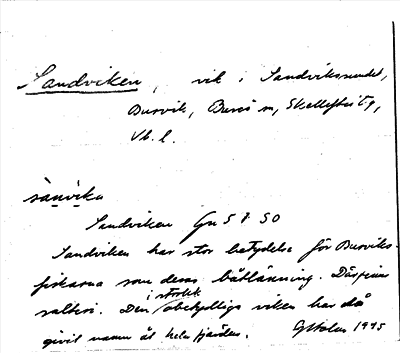 Sandviken, vik i Sandvikssundet,
Burvik, Bureå sn, Skellefteå tg,
Vb. l.
sànvìka
Sandviken Gu 5 8 50
Sandviken har stor betydelse för Burviks-
fiskarna som deras båtlänning. Där finns
salteri. Den i storlek obetydliga viken har då
givit namn åt hela fjärden. 1945